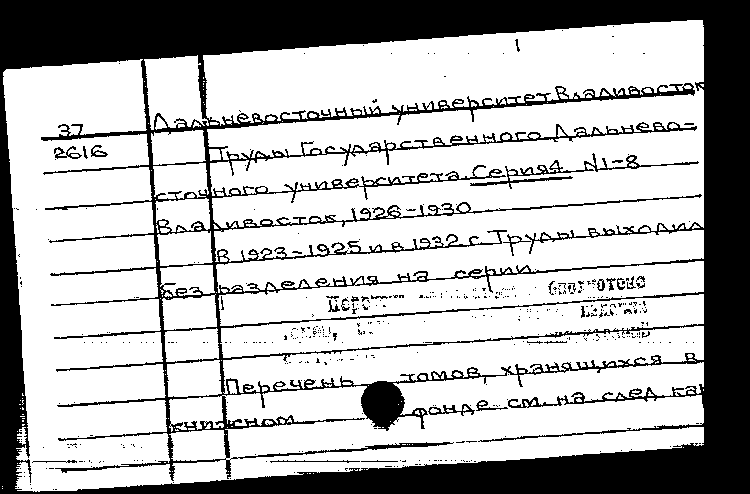 37 Дальневосточный университет. Владивосток
2616 Труды Государственного Дальнево-
сточного университета. Серия 4. N1-8
Владивосток, 1926-1930
В 1923-1925 и в 1932 г. Труды выходил
без разделения на серии.
библиотеке
Перечень томов, хранящихся в
книжном фонде см. на след. кар